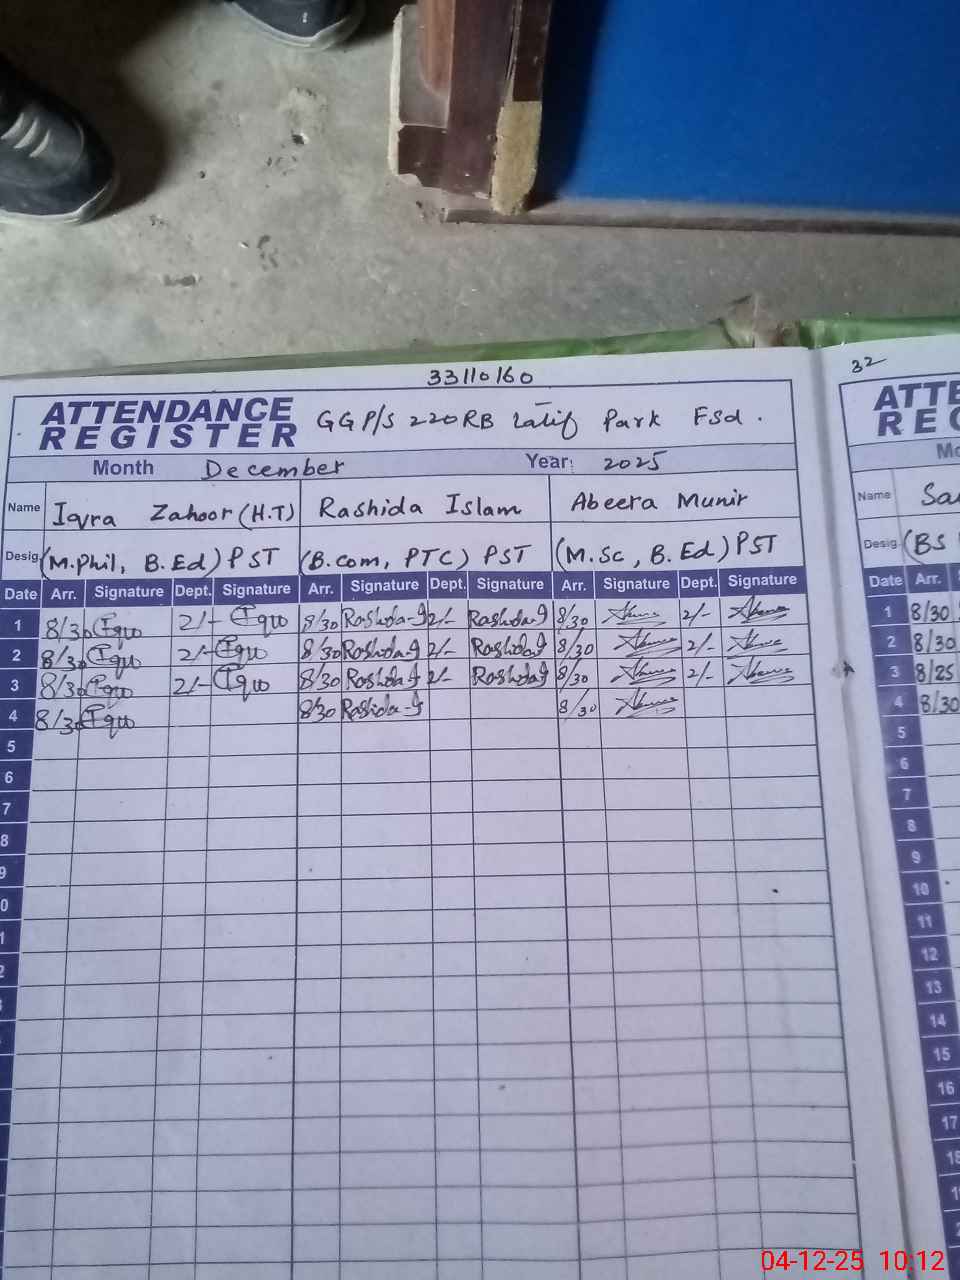 33110160
32
ATTENDANCE REGISTER GGP/S 220RB Latif Park Fsd.
Month December Year: 2025
Name Iqra Zahoor (H.T) Rashida Islam Abeera Munir
Desig. (M.Phil, B.Ed) PST (B.com, PTC) PST (M.Sc, B.Ed) PST
Date Arr. Signature Dept. Signature Arr. Signature Dept. Signature Arr. Signature Dept. Signature
1 8/30 Iqra 2/- Iqra 8/30 Rashida-I 2/- Rashida-I 8/30 2/-
2 8/30 Iqra 2/- Iqra 8/30 Rashida-I 2/- Rashida-I 8/30 2/-
3 8/30 Iqra 2/- Iqra 8/30 Rashida-I 2/- Rashida-I 8/30 2/-
4 8/30 Iqra 8/30 Rashida-I 8/30
5
6
7
8
9
0
1
2
Name
Desig. (BS
Date Arr.
1 8/30
2 8/30
3 8/25
4 8/30
5
6
7
8
9
10
11
12
13
14
15
16
17
04-12-25 10:12